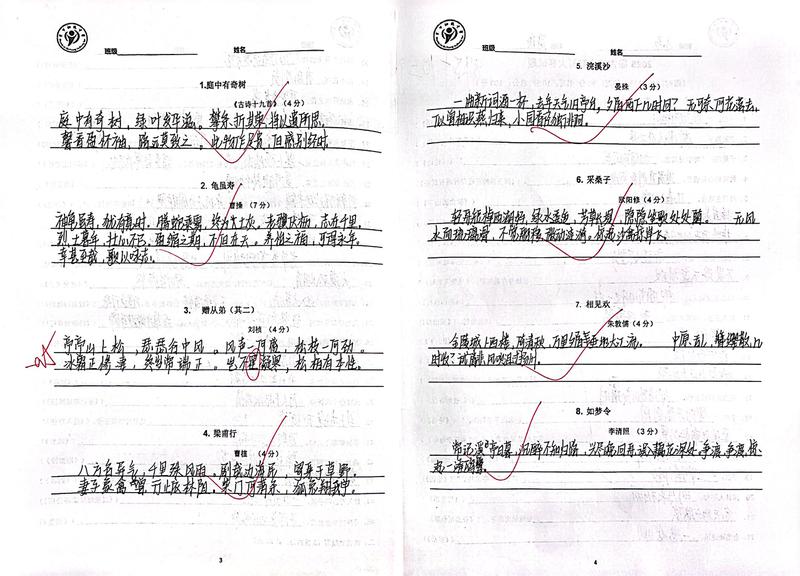 班级 姓名
1.庭中有奇树
《古诗十九首》(4分)
庭中有奇树，绿叶发华滋。攀条折其荣，将以遗所思。
馨香盈怀袖，路远莫致之。此物何足贵，但感别经时。
2. 龟虽寿
曹操 (7分)
神龟虽寿，犹有竟时。腾蛇乘雾，终为土灰。老骥伏枥，志在千里。
烈士暮年，壮心不已。盈缩之期，不但在天。养怡之福，可得永年。
幸甚至哉，歌以咏志。
3. 赠从弟（其二）
刘桢 (4分)
亭亭山上松，瑟瑟谷中风。风声一何盛，松枝一何劲。
冰霜正惨凄，终岁常端正。岂不罹凝寒，松柏有本性。
4. 梁甫行
曹植 (4分)
八方各异气，千里殊风雨。剧哉边海民，寄身于草野。
妻子象禽兽，行止依林阻。柴门何萧条，狐兔翔我宇。
3
班级 姓名
5. 浣溪沙
晏殊 (3分)
一曲新词酒一杯，去年天气旧亭台，夕阳西下几时回？无可奈何花落去，
似曾相识燕归来，小园香径独徘徊。
6. 采桑子
欧阳修 (4分)
轻舟短棹西湖好，绿水逶迤，芳草长堤，隐隐笙歌处处随。 无风
水面琉璃滑，不觉船移，微动涟漪。
7. 相见欢
朱敦儒 (4分)
金陵城上西楼，倚清秋，万里夕阳垂地大江流。 中原乱，簪缨散，几
时收？试倩悲风吹泪过扬州。
8. 如梦令
李清照 (3分)
常记溪亭日暮，沉醉不知归路，兴尽晚回舟，误入藕花深处。争渡，争渡，惊
起一滩鸥鹭。
4